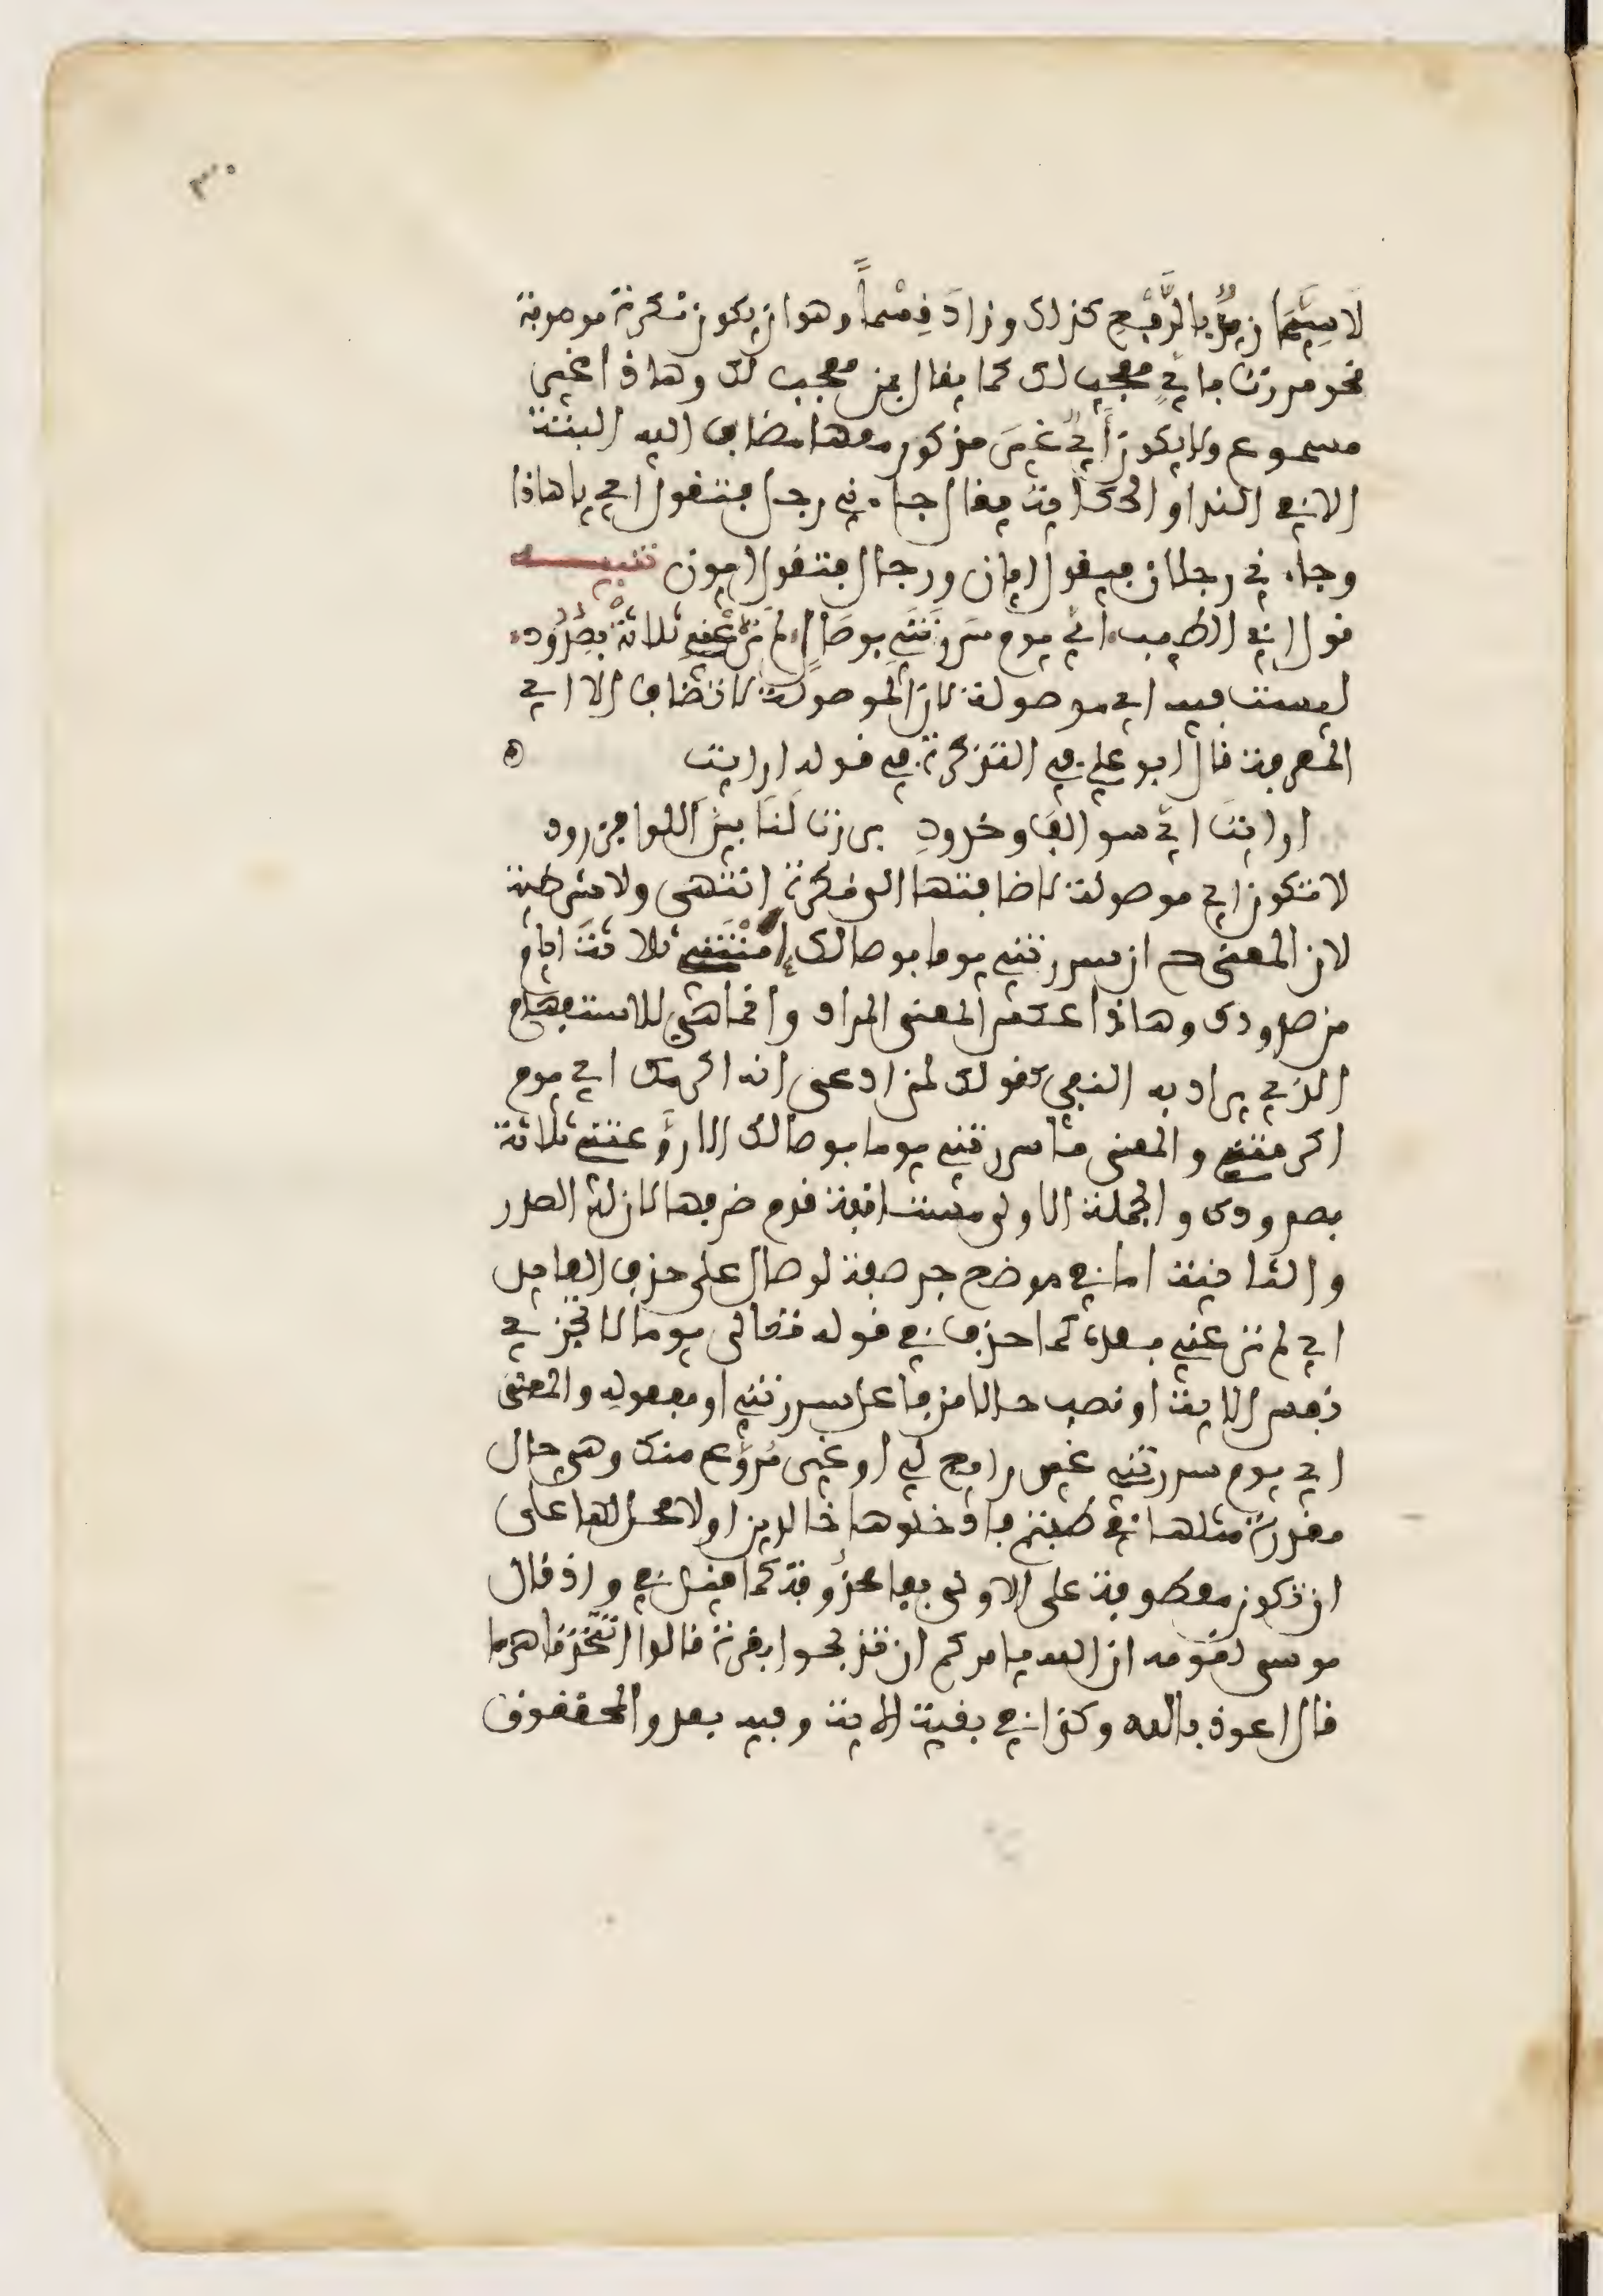 لا سِيَّمَا زيدٌ بالرَّفْعِ كذلك وزادَ قِسْماً وهو ان يكون نكرة موصوفة
نحو مررت باىٍّ معجب لك كما يقال بمن معجب لك وهاذا غير
مسموع ولا يكون أىٌّ غيرَ مذكور معها مضاف اليه البتة
الا فى الندا والحكاية يقال جاءنى رجل فتقول اى ياهاذا
وجاءنى رجلان فيقول ايان ورجال فتقول ايون تنبيه
قول ابى الطيب اىَّ يوم سَرَرْتَنِى بوصَالٍ لم تَرُعْنِى ثلاثةً بِصُدُود
ليست فيه اى موصولة لان الموصولة لا تضاف الا الى
المعرفة قال ابو على فى التذكرة فى قوله ارايت
ارايتَ اىَّ سوالفَ وخدودِ برزت لَنَا بين اللوا فزرود
لا تكون اى موصولة لاضافتها الى نكرة انتهى ولا شرطية
لان المعنى ح ان سررتنى يوما بوصالك امنتنى ثلاثة ايام
من صدودك وهاذا عكس المعنى المراد وانما هى للاستفهام
الذى يراد به النفى كقولك لمن ادعى انه اكرمك اى يوم
اكرمتنى والمعنى ما سررتنى يوما بوصالك الا روَّعتنى ثلاثة
بصدودك والجملة الاولى مستانفة قدم ظرفها لان له الصدر
والثانية اما فى موضع جر صفة لوصال على حذف العايد
اى لم ترعنى بعده كما حذف فى قوله تعالى يوما لا تجزى
نفس الاية او نصب حالا من فاعل سررتنى او مفعوله والمعنى
اى يوم سررتنى غير رايع لى او غير مُرَوَّع منك وهى حال
مقدرة مثلها فى طبتم فادخلوها خالدين او لا محل لها على
ان تكون معطوفة على الاولى بفا محذوفة كما قيل فى واذ قال
موسى لقومه ان الله يامركم ان تذبحوا بقرة قالوا اتتخذنا هزءا
قال اعوذ بالله وكذا فى بقية الاية وفيه بعد والمحققون